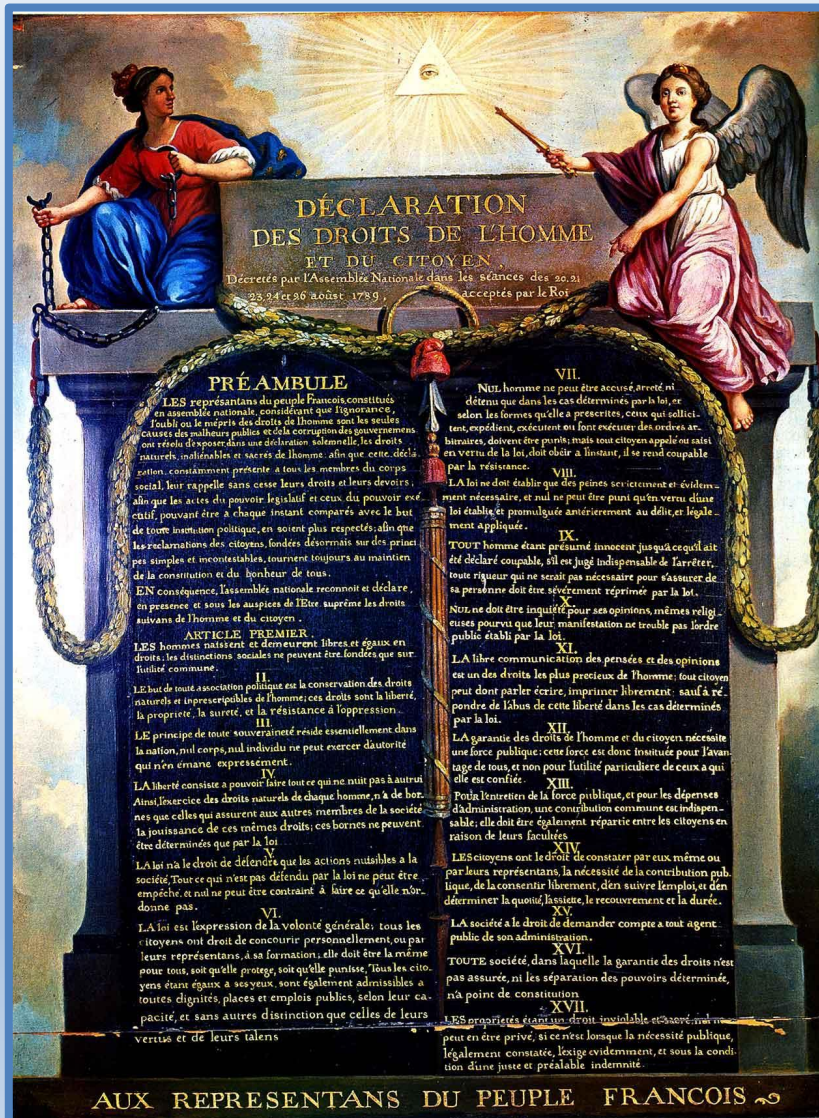 DÉCLARATION
DES DROITS DE L'HOMME
ET DU CITOYEN,
Décretés par l'Assemblée Nationale dans les séances des 20, 21
23, 24 et 26 aoûst 1789, acceptés par le Roi
PRÉAMBULE
LES représantans du peuple Francois, constitués
en assemblée nationale, considérant que l'ignorance,
l'oubli ou le mépris des droits de l'homme sont les seules
causes des malheurs publics et de la corruption des gouvernemens
ont résolu d'exposer, dans une déclaration solemnelle, les droits
naturels, inaliénables et sacrés de l'homme; afin que cette décla-
ration, constamment présente a tous les membres du corps
social, leur rappelle sans cesse leurs droits et leurs devoirs;
afin que les actes du pouvoir législatif et ceux du pouvoir exé-
cutif, pouvant être a chaque instant comparés avec le but
de toute institution politique, en soient plus respectés; afin que
les reclamations des citoyens, fondées désormais sur des princi-
pes simples et incontestables, tournent toujours au maintien
de la constitution et du bonheur de tous.
EN conséquence, l'assemblée nationale reconnoit et déclare,
en presence et sous les auspices de l'Etre suprême les droits
suivans de l'homme et du citoyen.
ARTICLE PREMIER.
LES hommes naissent et demeurent libres et égaux en
droits; les distinctions sociales ne peuvent être fondées que sur
l'utilité commune.
II.
LE but de toute association politique est la conservation des droits
naturels et inprescriptibles de l'homme; ces droits sont la liberté,
la propriété, la sureté, et la résistance à l'oppression.
III.
LE principe de toute souveraineté réside essentiellement dans
la nation, nul corps, nul individu ne peut exercer d'autorité
qui n'en émane expressément.
IV.
LA liberté consiste a pouvoir faire tout ce qui ne nuit pas à autrui
Ainsi, l'exercice des droits naturels de chaque homme, n'a de bor-
nes que celles qui assurent aux autres membres de la société
la jouissance de ces mêmes droits; ces bornes ne peuvent
être déterminées que par la loi
V.
LA loi n'a le droit de défendre que les actions nuisibles a la
société, Tout ce qui n'est pas défendu par la loi ne peut être
empêché, et nul ne peut être contraint à faire ce qu'elle n'or-
donne pas.
VI.
LA loi est l'expression de la volonté générale; tous les
citoyens ont droit de concourir personnellement, ou par
leurs représentans, à sa formation; elle doit être la même
pour tous, soit qu'elle protege, soit qu'elle punisse, Tous les cito-
yens étant égaux a ses yeux, sont également admissibles a
toutes dignités, places et emplois publics, selon leur ca-
pacité, et sans autres distinction que celles de leurs
vertus et de leurs talens
VII.
NUL homme ne peut être accusé, arreté, ni
détenu que dans les cas déterminés par la loi, et
selon les formes qu'elle a prescrites, ceux qui sollici-
tent, expédient, exécutent ou font exécuter des ordres ar-
bitraires, doivent être punis; mais tout citoyen appelé ou saisi
en vertu de la loi, doit obéir a l'instant, il se rend coupable
par la résistance.
VIII.
LA loi ne doit établir que des peines strictement et évidem-
ment nécessaire, et nul ne peut être puni qu'en vertu d'une
loi établie et promulguée antérierement au délit, et légale-
ment appliquée.
IX.
TOUT homme étant présumé innocent jusqu'à ce qu'il ait
été déclaré coupable, s'il est jugé indispensable de l'arrêter,
toute rigueur qui ne serait pas nécessaire pour s'assurer de
sa personne doit être sévèrement réprimée par la loi.
X.
NUL ne doit être inquiété pour ses opinions, mêmes religi-
euses pourvu que leur manifestation ne trouble pas l'ordre
public établi par la loi.
XI.
LA libre communication des pensées et des opinions
est un des droits les plus precieux de l'homme; tout citoyen
peut dont parler écrire, imprimer librement; sauf à ré-
pondre de l'abus de cette liberté dans les cas déterminés
par la loi.
XII.
LA garantie des droits de l'homme et du citoyen nécessite
une force publique; cette force est donc instituée pour l'avan-
tage de tous, et non pour l'utilité particuliere de ceux a qui
elle est confiée.
XIII.
POUR l'entretien de la force publique, et pour les dépenses
d'administration, une contribution commune est indispen-
sable; elle doit être également répartie entre les citoyens en
raison de leurs facultées
XIV.
LES citoyens ont le droit de constater par eux même ou
par leurs représentans, la nécessité de la contribution pub-
lique, de la consentir librement, d'en suivre l'emploi, et d'en
déterminer la quotité, l'assiette, le recouvrement et la durée.
XV.
LA société a le droit de demander compte a tout agent
public de son administration.
XVI.
TOUTE société, dans laquelle la garantie des droits n'est
pas assurée, ni les séparation des pouvoirs déterminée,
n'a point de constitution
XVII.
LES proprietés étant un droit inviolable et sacré, nul ne
peut en être privé, si ce n'est lorsque la nécessité publique,
légalement constatée, l'exige evidemment, et sous la condi-
tion d'une juste et préalable indemnité.
AUX REPRESENTANS DU PEUPLE FRANCOIS